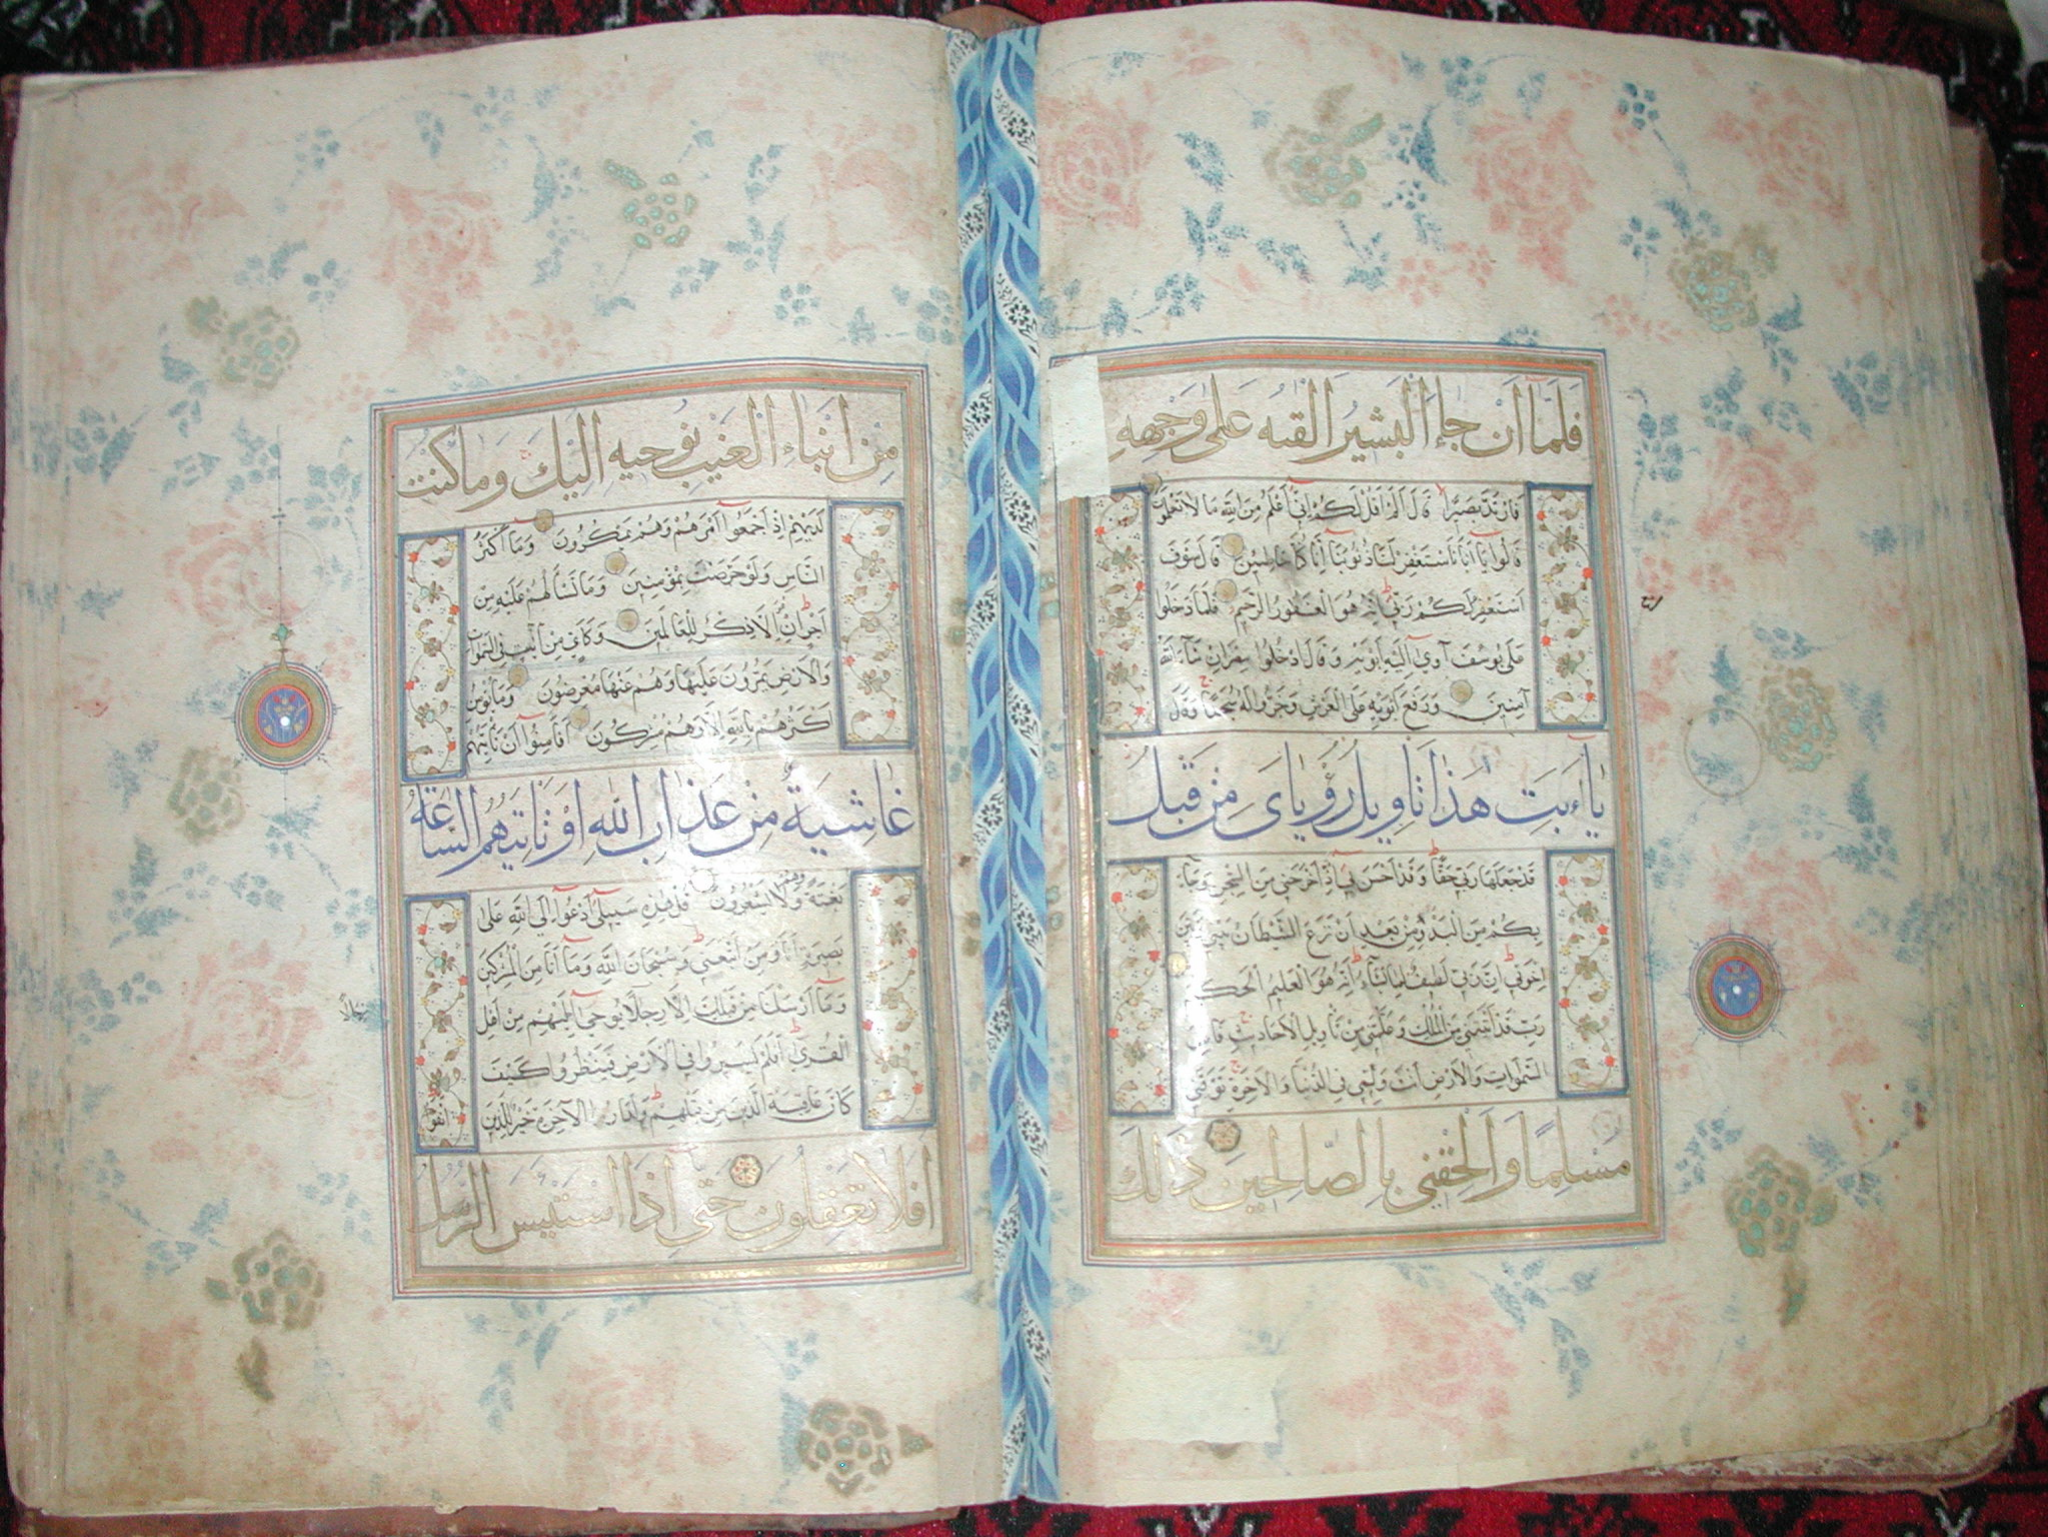 فَلَمَّا اَنْ جَاءَ الْبَشِيرُ اَلْقٰيهُ عَلٰى وَجْهِهِ
فَارْتَدَّ بَصِيرًا قَالَ اَلَمْ اَقُلْ لَكُمْ اِنِّي اَعْلَمُ مِنَ اللهِ مَا لَا تَعْلَمُونَ
قَالُوا يَا اَبَانَا اسْتَغْفِرْ لَنَا ذُنُوبَنَا اِنَّا كُنَّا خَاطِئِينَ قَالَ سَوْفَ
اَسْتَغْفِرُ لَكُمْ رَبِّي اِنَّهُ هُوَ الْغَفُورُ الرَّحِيمُ فَلَمَّا دَخَلُوا
عَلٰى يُوسُفَ آوٰى اِلَيْهِ اَبَوَيْهِ وَقَالَ ادْخُلُوا مِصْرَ اِنْ شَاءَ اللهُ
آمِنِينَ وَرَفَعَ اَبَوَيْهِ عَلَى الْعَرْشِ وَخَرُّوا لَهُ سُجَّدًا وَقَالَ
يَا اَبَتِ هٰذَا تَاْوِيلُ رُؤْيَايَ مِنْ قَبْلُ
قَدْ جَعَلَهَا رَبِّي حَقًّا وَقَدْ اَحْسَنَ بِي اِذْ اَخْرَجَنِي مِنَ السِّجْنِ وَجَاءَ
بِكُمْ مِنَ الْبَدْوِ مِنْ بَعْدِ اَنْ نَزَغَ الشَّيْطَانُ بَيْنِي وَبَيْنَ
اِخْوَتِي اِنَّ رَبِّي لَطِيفٌ لِمَا يَشَاءُ اِنَّهُ هُوَ الْعَلِيمُ الْحَكِيمُ
رَبِّ قَدْ آتَيْتَنِي مِنَ الْمُلْكِ وَعَلَّمْتَنِي مِنْ تَاْوِيلِ الْاَحَادِيثِ فَاطِرَ
السَّمٰوَاتِ وَالْاَرْضِ اَنْتَ وَلِيِّي فِي الدُّنْيَا وَالْاٰخِرَةِ تَوَفَّنِي
مُسْلِمًا وَاَلْحِقْنِي بِالصَّالِحِينَ ذٰلِكَ
مِنْ اَنْبَاءِ الْغَيْبِ نُوحِيهِ اِلَيْكَ وَمَا كُنْتَ
لَدَيْهِمْ اِذْ اَجْمَعُوا اَمْرَهُمْ وَهُمْ يَمْكُرُونَ وَمَا اَكْثَرُ
النَّاسِ وَلَوْ حَرَصْتَ بِمُؤْمِنِينَ وَمَا تَسْاَلُهُمْ عَلَيْهِ مِنْ
اَجْرٍ اِنْ هُوَ اِلَّا ذِكْرٌ لِلْعَالَمِينَ وَكَاَيِّنْ مِنْ آيَةٍ فِي السَّمٰوَاتِ
وَالْاَرْضِ يَمُرُّونَ عَلَيْهَا وَهُمْ عَنْهَا مُعْرِضُونَ وَمَا يُؤْمِنُ
اَكْثَرُهُمْ بِاللهِ اِلَّا وَهُمْ مُشْرِكُونَ اَفَاَمِنُوا اَنْ تَاْتِيَهُمْ
غَاشِيَةٌ مِنْ عَذَابِ اللهِ اَوْ تَاْتِيَهُمُ السَّاعَةُ
بَغْتَةً وَهُمْ لَا يَشْعُرُونَ قُلْ هٰذِهِ سَبِيلِي اَدْعُوا اِلَى اللهِ عَلٰى
بَصِيرَةٍ اَنَا وَمَنِ اتَّبَعَنِي وَسُبْحَانَ اللهِ وَمَا اَنَا مِنَ الْمُشْرِكِينَ
وَمَا اَرْسَلْنَا مِنْ قَبْلِكَ اِلَّا رِجَالًا نُوحِي اِلَيْهِمْ مِنْ اَهْلِ
الْقُرٰى اَفَلَمْ يَسِيرُوا فِي الْاَرْضِ فَيَنْظُرُوا كَيْفَ
كَانَ عَاقِبَةُ الَّذِينَ مِنْ قَبْلِهِمْ وَلَدَارُ الْاٰخِرَةِ خَيْرٌ لِلَّذِينَ اتَّقَوْا
اَفَلَا تَعْقِلُونَ حَتّٰى اِذَا اسْتَيْئَسَ الرُّسُلُ